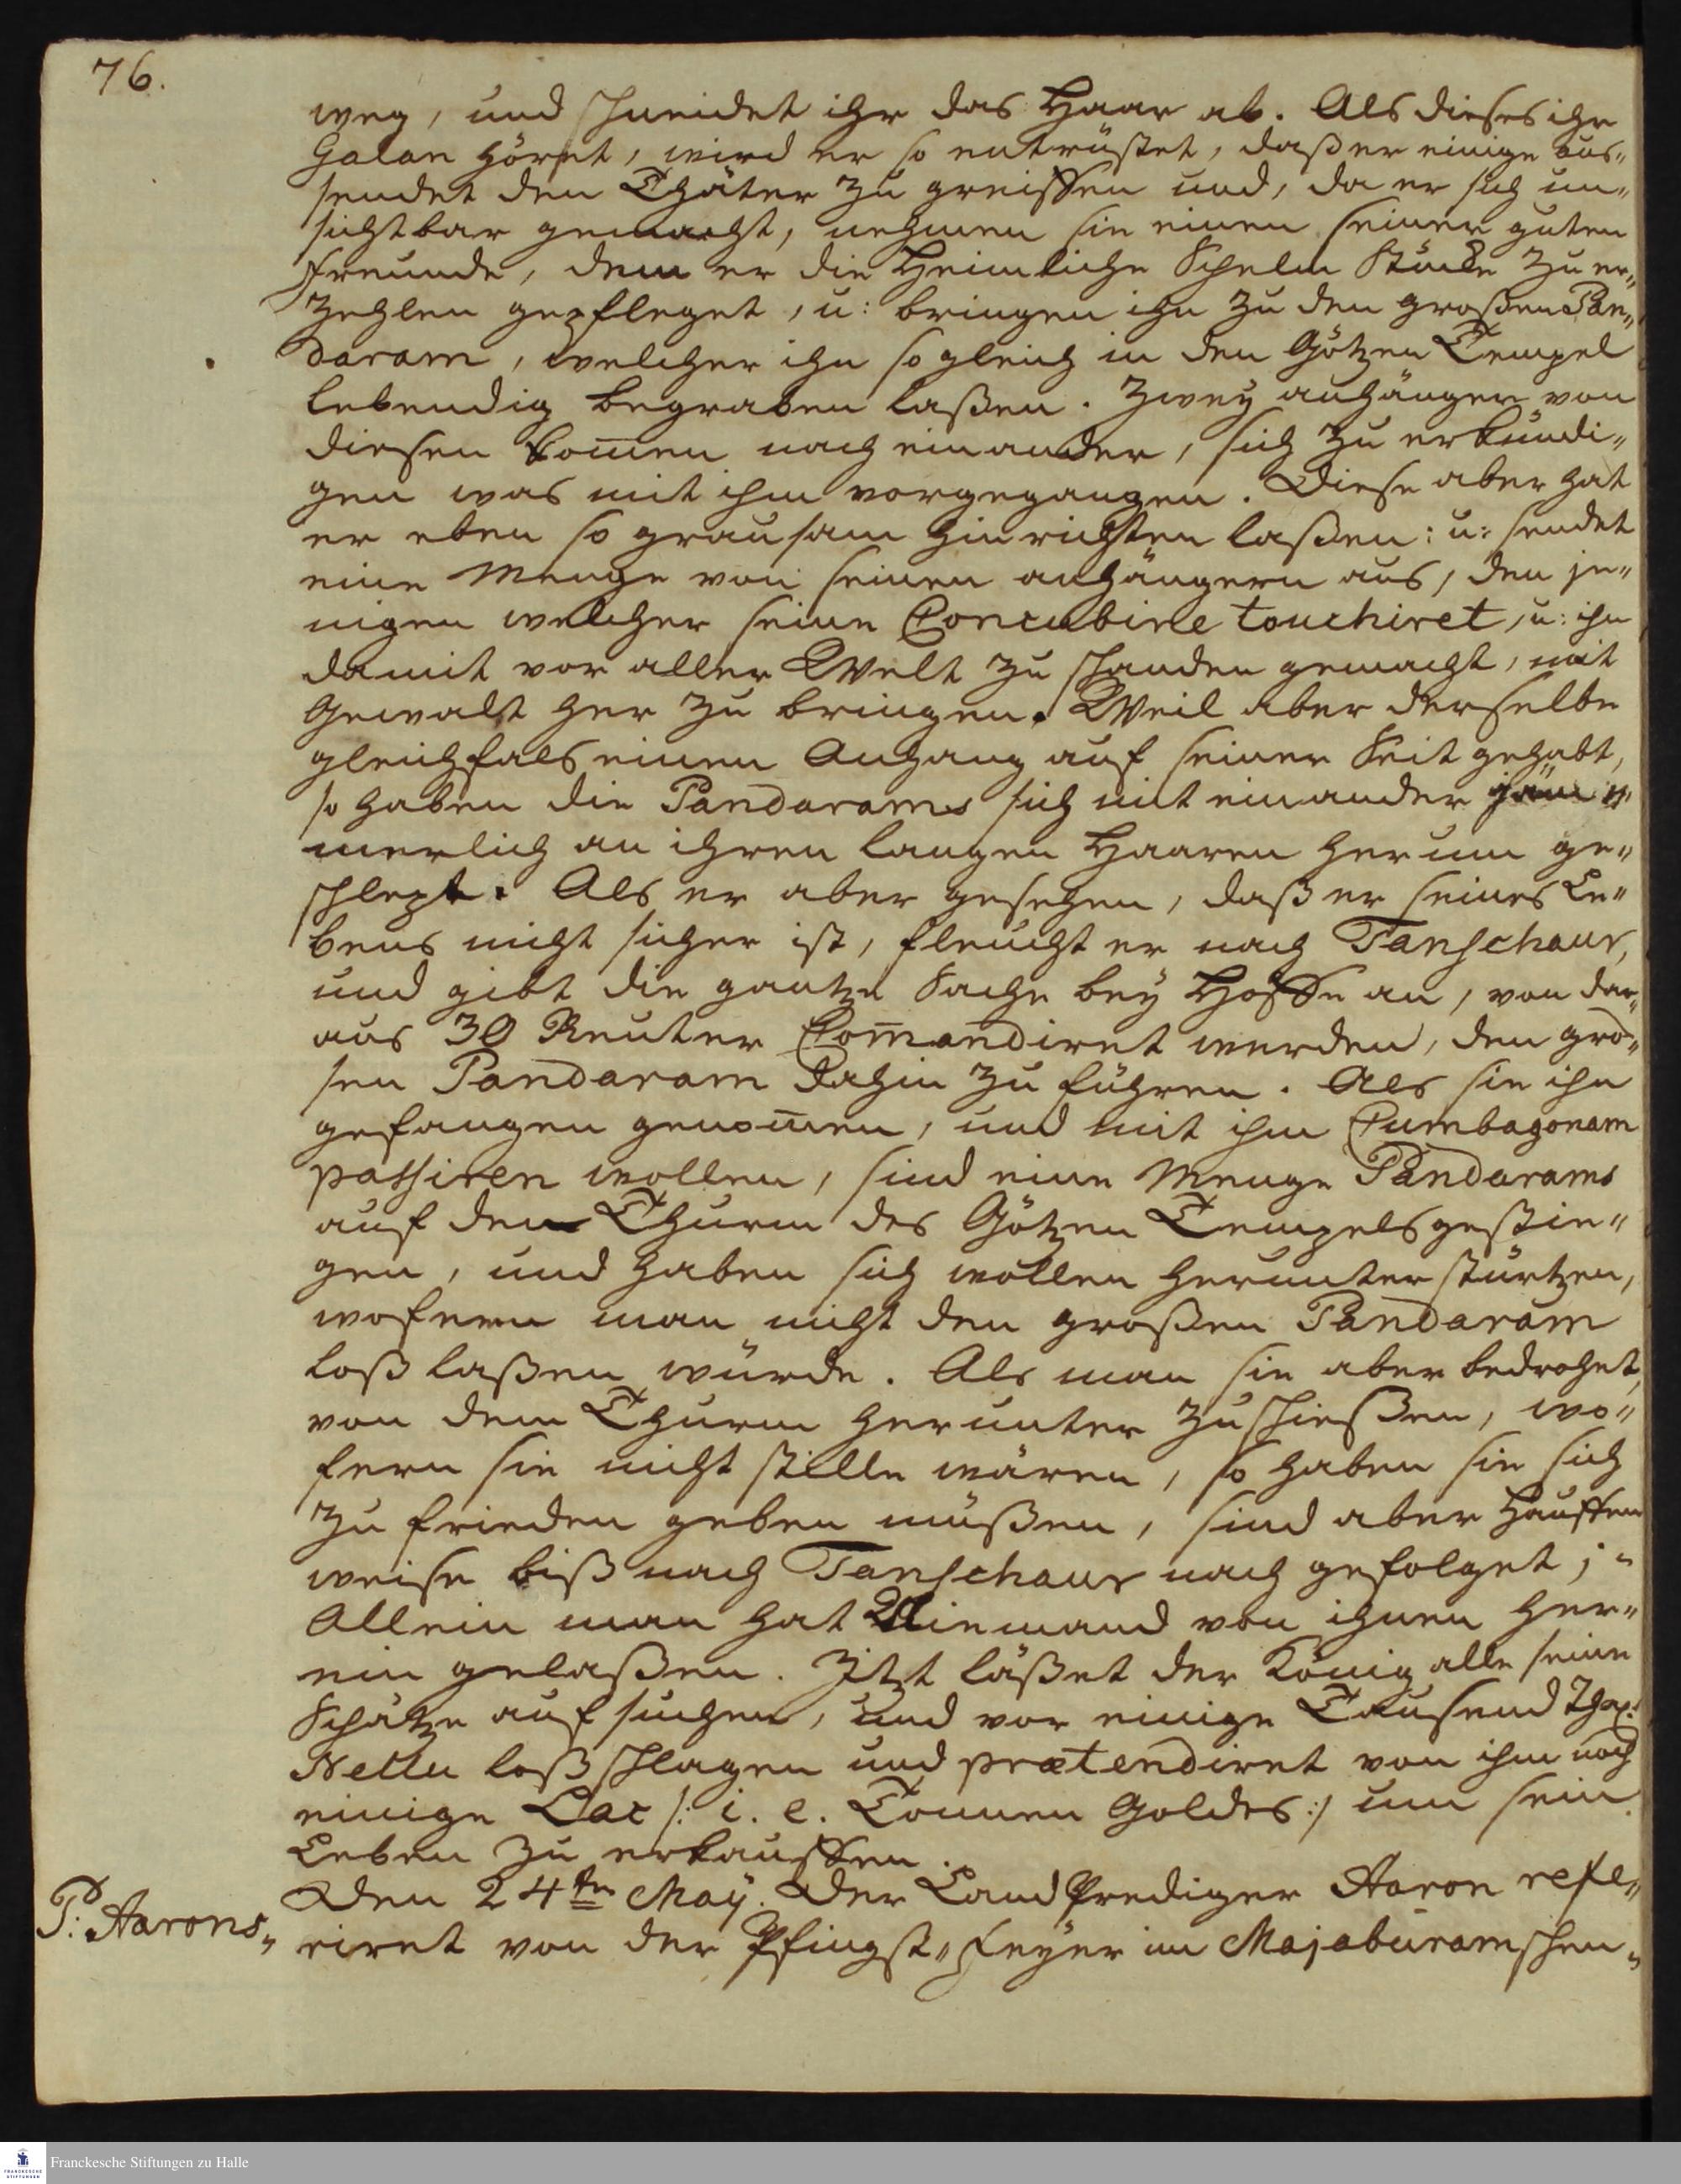 76.
weg, und schneidet ihr das Haar ab. Als dieses ihr
Galan höret, wird er so entrüstet, daß er einige aus„
sendet den Thäter zu greiffen und, da er sich un„
sichtbar gemacht, nehmen sie einen seiner guten
Freunde, dem er die heimliche Schelm Stücke zu er„
zehlen gepfleget, u: bringen ihn zu den großen Pan„
daram, welcher ihn so gleich in den Götzen Tempel
lebendig begraben laßen. Zwey anhänger von
diesen kom̅en nach einander, sich zu erkundi„
gen was mit ihm vorgegangen. Diese aber hat
er eben so grausam hinrichten laßen: u: sendet
eine Menge von seinen anhängern aus, den je„
nigen welcher seine Concubine touchiret, u: ihn
damit vor aller Welt zu schanden gemacht, mit
Gewalt her zu bringen. Weil aber derselbe
gleichfals einen Anhang auf seiner Seit gehabt,
so haben die Pandarams sich mit einander jäm„
merlich an ihren langen Haaren herum ge„
schlept. Als er aber gesehen, daß er seines Le„
bens nicht sicher ist, fleucht er nach Tanschaur,
und gibt die gantze Sache bey Hoffe an, von dar„
aus 30 Reuter Com̅andiret werden, den gro„
sen Pandaram dahin zu führen. Als sie ihn
gefangen genom̅en, und mit ihm Cumbagonam
passiren wollen, sind eine Menge Pandarams
auf den Thurm des Götzen Tempels gestie„
gen, und haben sich wollen herunter stürtzen,
wofern man nicht den großen Pandaram
loß laßen würde. Als man sie aber bedrohet,
von dem Thurm herunter zu schießen, wo„
fern sie nicht stille wären, so haben sie sich
zu frieden geben müßen, sind aber hauffen
weise biß nach Tanschaur nach gefolget;
Allein man hat Niemand von ihnen her„
ein gelaßen. Jtzt läßet der König alle seine
Schätze auf suchen, und vor einige Tausend Thal:
Nellu loß schlagen und prætendiret von ihm noch
einige Lac /: i. e. Tonnen Goldes :/ um sein
Leben zu erkauffen.
Den 24ten May. Der Land Prediger Aaron refe„
P: Aarons„
riret von der Pfingst„Feyer im Majaburamschen„
Franckesche Stiftungen zu Halle
FRANCKESCHE STIFTUNGEN